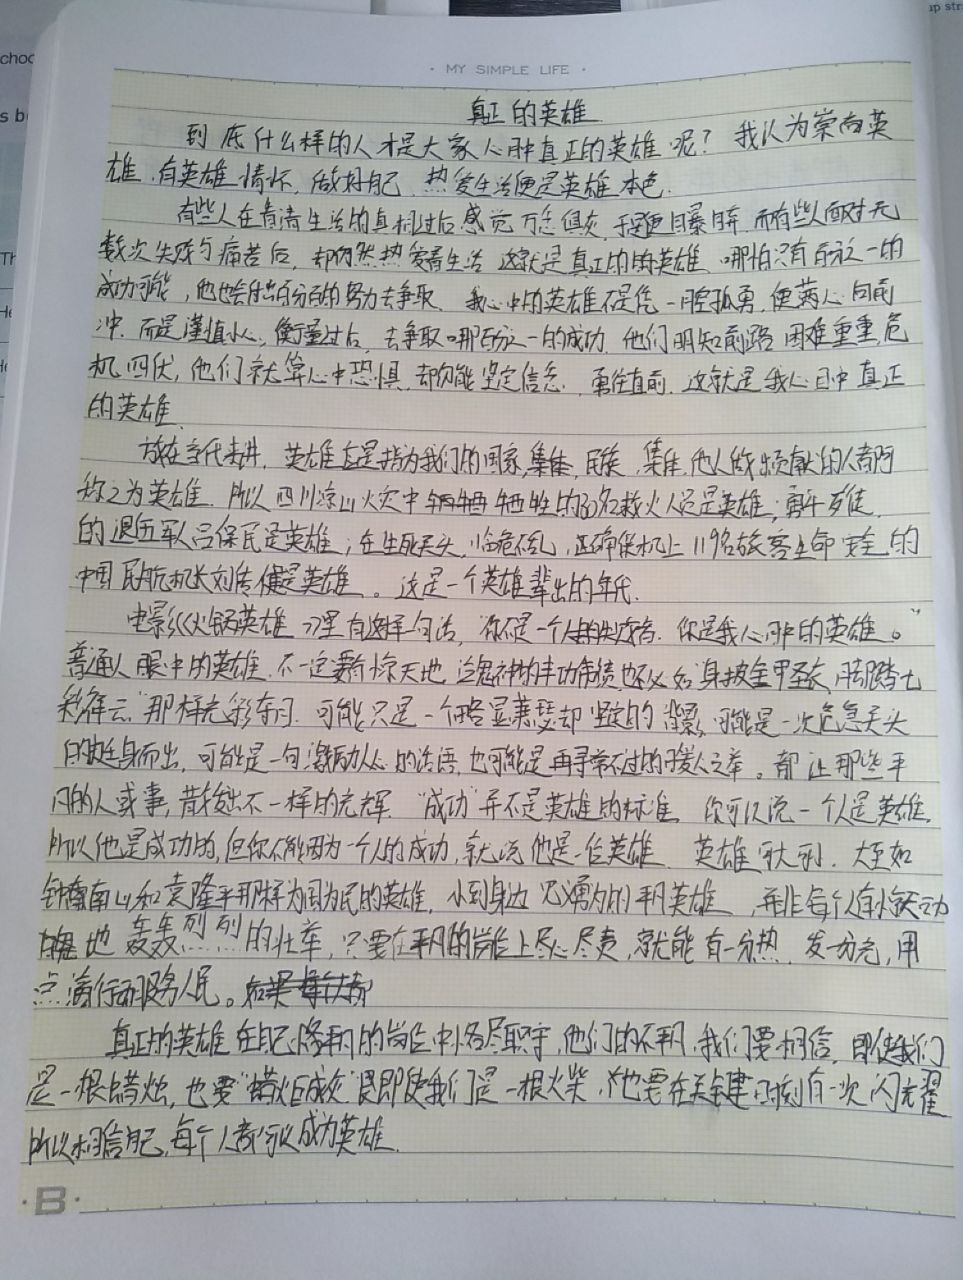 choo
up str
s b
Th
He
He
· MY SIMPLE LIFE ·
真正的英雄
到底什么样的人才是大家心目中真正的英雄呢？我认为崇尚英
雄，有英雄情怀，做好自己，热爱生活便是英雄本色．
有些人在看清生活的真相过后感觉万念俱灰，于是便自暴自弃，而有些人面对无
数次失败与痛苦后，却仍然热爱着生活，这就是真正的英雄．哪怕只有百分之一的
成功可能，他也会付出百分百的努力去争取．我心中的英雄不是凭一腔孤勇，便满心向前
冲，而是谨慎小心，衡量过后，去争取哪百分之一的成功．他们明知前路困难重重，危
机四伏，他们就算心中恐惧，却仍能坚定信念，勇往直前，这就是我心目中真正
的英雄．
放在当代来讲，英雄应是指为我们的国家，集体，民族，他人做出贡献的人都可
称之为英雄．所以四川凉山火灾中牺牲的30名救火人员是英雄；勇斗歹徒
的退伍军人吕保民是英雄；在生死关头，临危不乱，正确保机上119名旅客生命安全的
中国民航机长刘传健是英雄。这是一个英雄辈出的年代．
电影《火锅英雄》里有这样句话，"你不是一个人的失败者，你是我心目中的英雄。"
普通人眼中的英雄，不一定要有惊天地，泣鬼神的丰功伟绩，也不必如"身披金甲圣衣，脚踏七
彩祥云"那样光彩夺目．可能只是一个略显萧瑟却坚定的背影，可能是一次危急关头
的挺身而出，可能是一句激励人心的话语，也可能是再寻常不过的可爱之举。都让那些平
凡的人或事，散发出不一样的光辉．"成功"并不是英雄的标准．你可以说一个人是英雄，
所以他是成功的，但你不能因为一个人的成功，就说他是一位英雄．英雄可大可小，大至如
钟南山和袁隆平那样为国为民的英雄，小到身边见义勇为的平凡英雄，并非每个人都有惊天动
地轰轰烈烈的壮举，只要在平凡的岗位上尽心尽责，就能有一分热，发一分光，用
点滴行动服务人民。
真正的英雄在自己平凡的岗位中恪尽职守，他们的不平凡，我们要相信，即使我们
是一根蜡烛，也要"蜡炬成灰"，即使我们是一根火柴，也要在关键时刻有一次闪光耀
所以相信自己，每个人都可以成为英雄．
· B ·